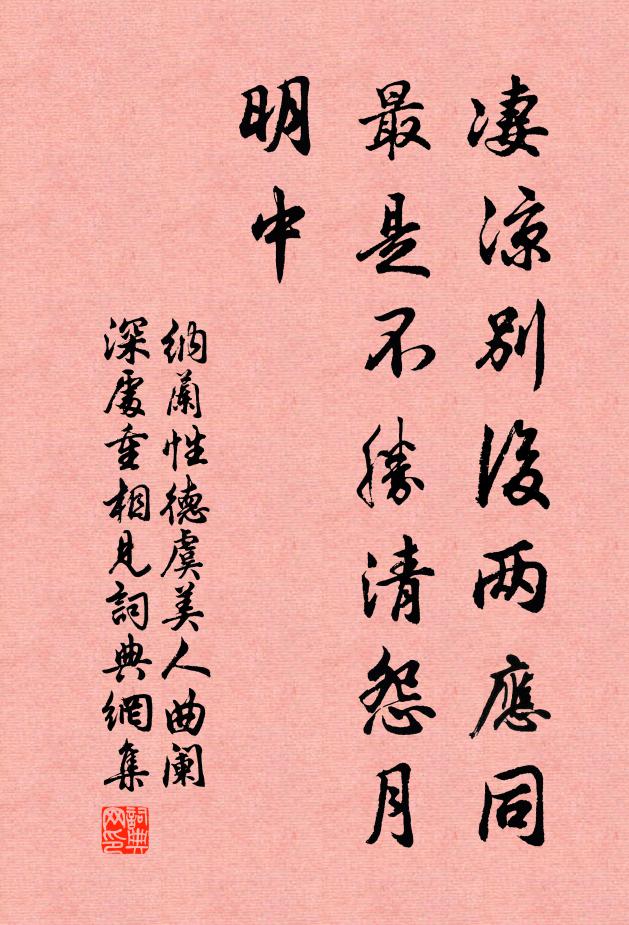 凄凉別後两應同
最是不勝清怨月
明中
纳蘭性德虞美人曲阑
深處重相見詞典網集
詞典
网印